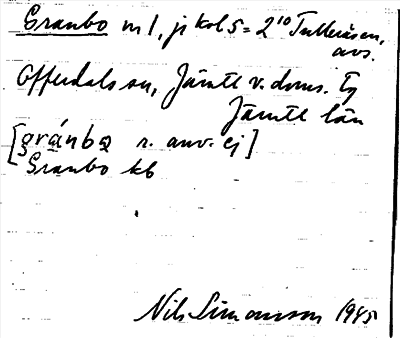 Granbo m 1, j kbl 5 = 2¹⁰ Tulleråsen,
avs.
Offerdals sn, Jämtl v. doms. Tg
Jämtl län
[gránbo r. anv. ej]
Granbo kb
Nils Simonsson 1945